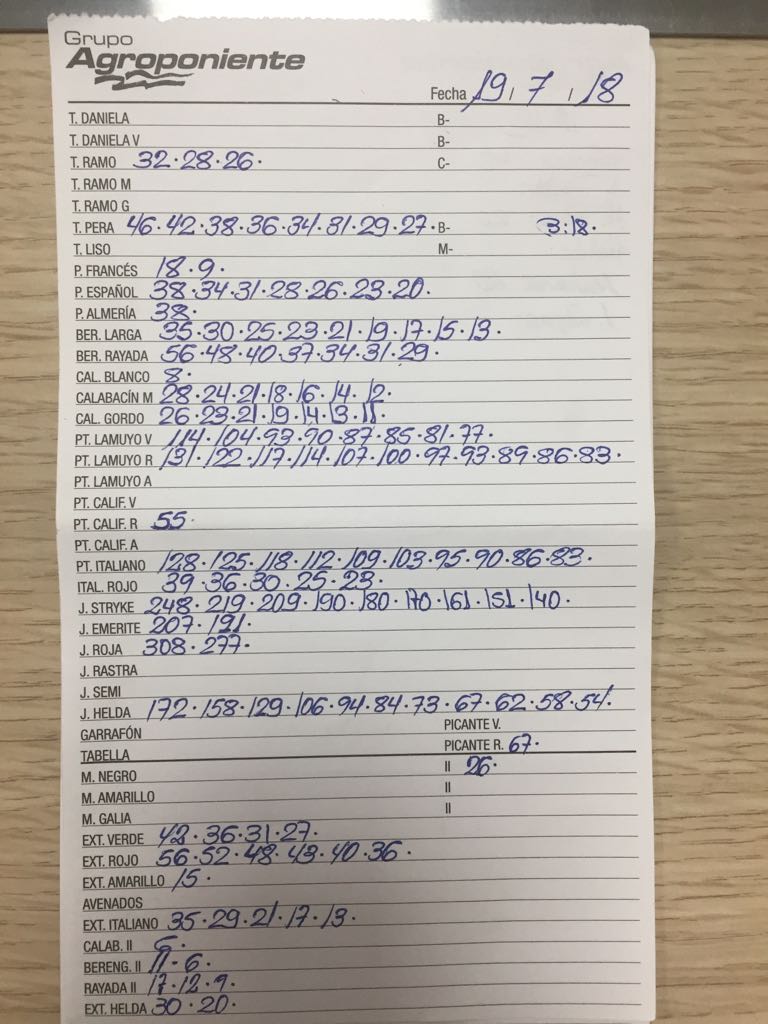 Grupo
Agroponiente
Fecha 19 / 7 / 18
T. DANIELA B-
T. DANIELA V B-
T. RAMO 32·28·26· C-
T. RAMO M
T. RAMO G
T. PERA 46·42·38·36·34·31·29·27· B- 3:18·
T. LISO M-
P. FRANCÉS 18·9·
P. ESPAÑOL 38·34·31·28·26·23·20·
P. ALMERÍA 38·
BER. LARGA 35·30·25·23·21·19·17·15·13·
BER. RAYADA 56·48·40·37·34·31·29·
CAL. BLANCO 8·
CALABACÍN M 28·24·21·18·16·14·12·
CAL. GORDO 26·23·21·19·14·13·11·
PT. LAMUYO V 114·104·93·90·87·85·81·77·
PT. LAMUYO R 131·122·117·114·107·100·97·93·89·86·83·
PT. LAMUYO A
PT. CALIF. V
PT. CALIF. R 55·
PT. CALIF. A
PT. ITALIANO 128·125·118·112·109·103·95·90·86·83·
ITAL. ROJO 39·36·30·25·23·
J. STRYKE 248·219·209·190·180·170·161·151·140·
J. EMERITE 207·191·
J. ROJA 308·277·
J. RASTRA
J. SEMI
J. HELDA 172·158·129·106·94·84·73·67·62·58·54·
GARRAFÓN PICANTE V.
TABELLA PICANTE R. 67·
M. NEGRO II 26·
M. AMARILLO II
M. GALIA II
EXT. VERDE 42·36·31·27·
EXT. ROJO 56·52·48·43·40·36·
EXT. AMARILLO 15·
AVENADOS
EXT. ITALIANO 35·29·21·17·13·
CALAB. II 6·
BERENG. II 11·6·
RAYADA II 17·12·9·
EXT. HELDA 30·20·